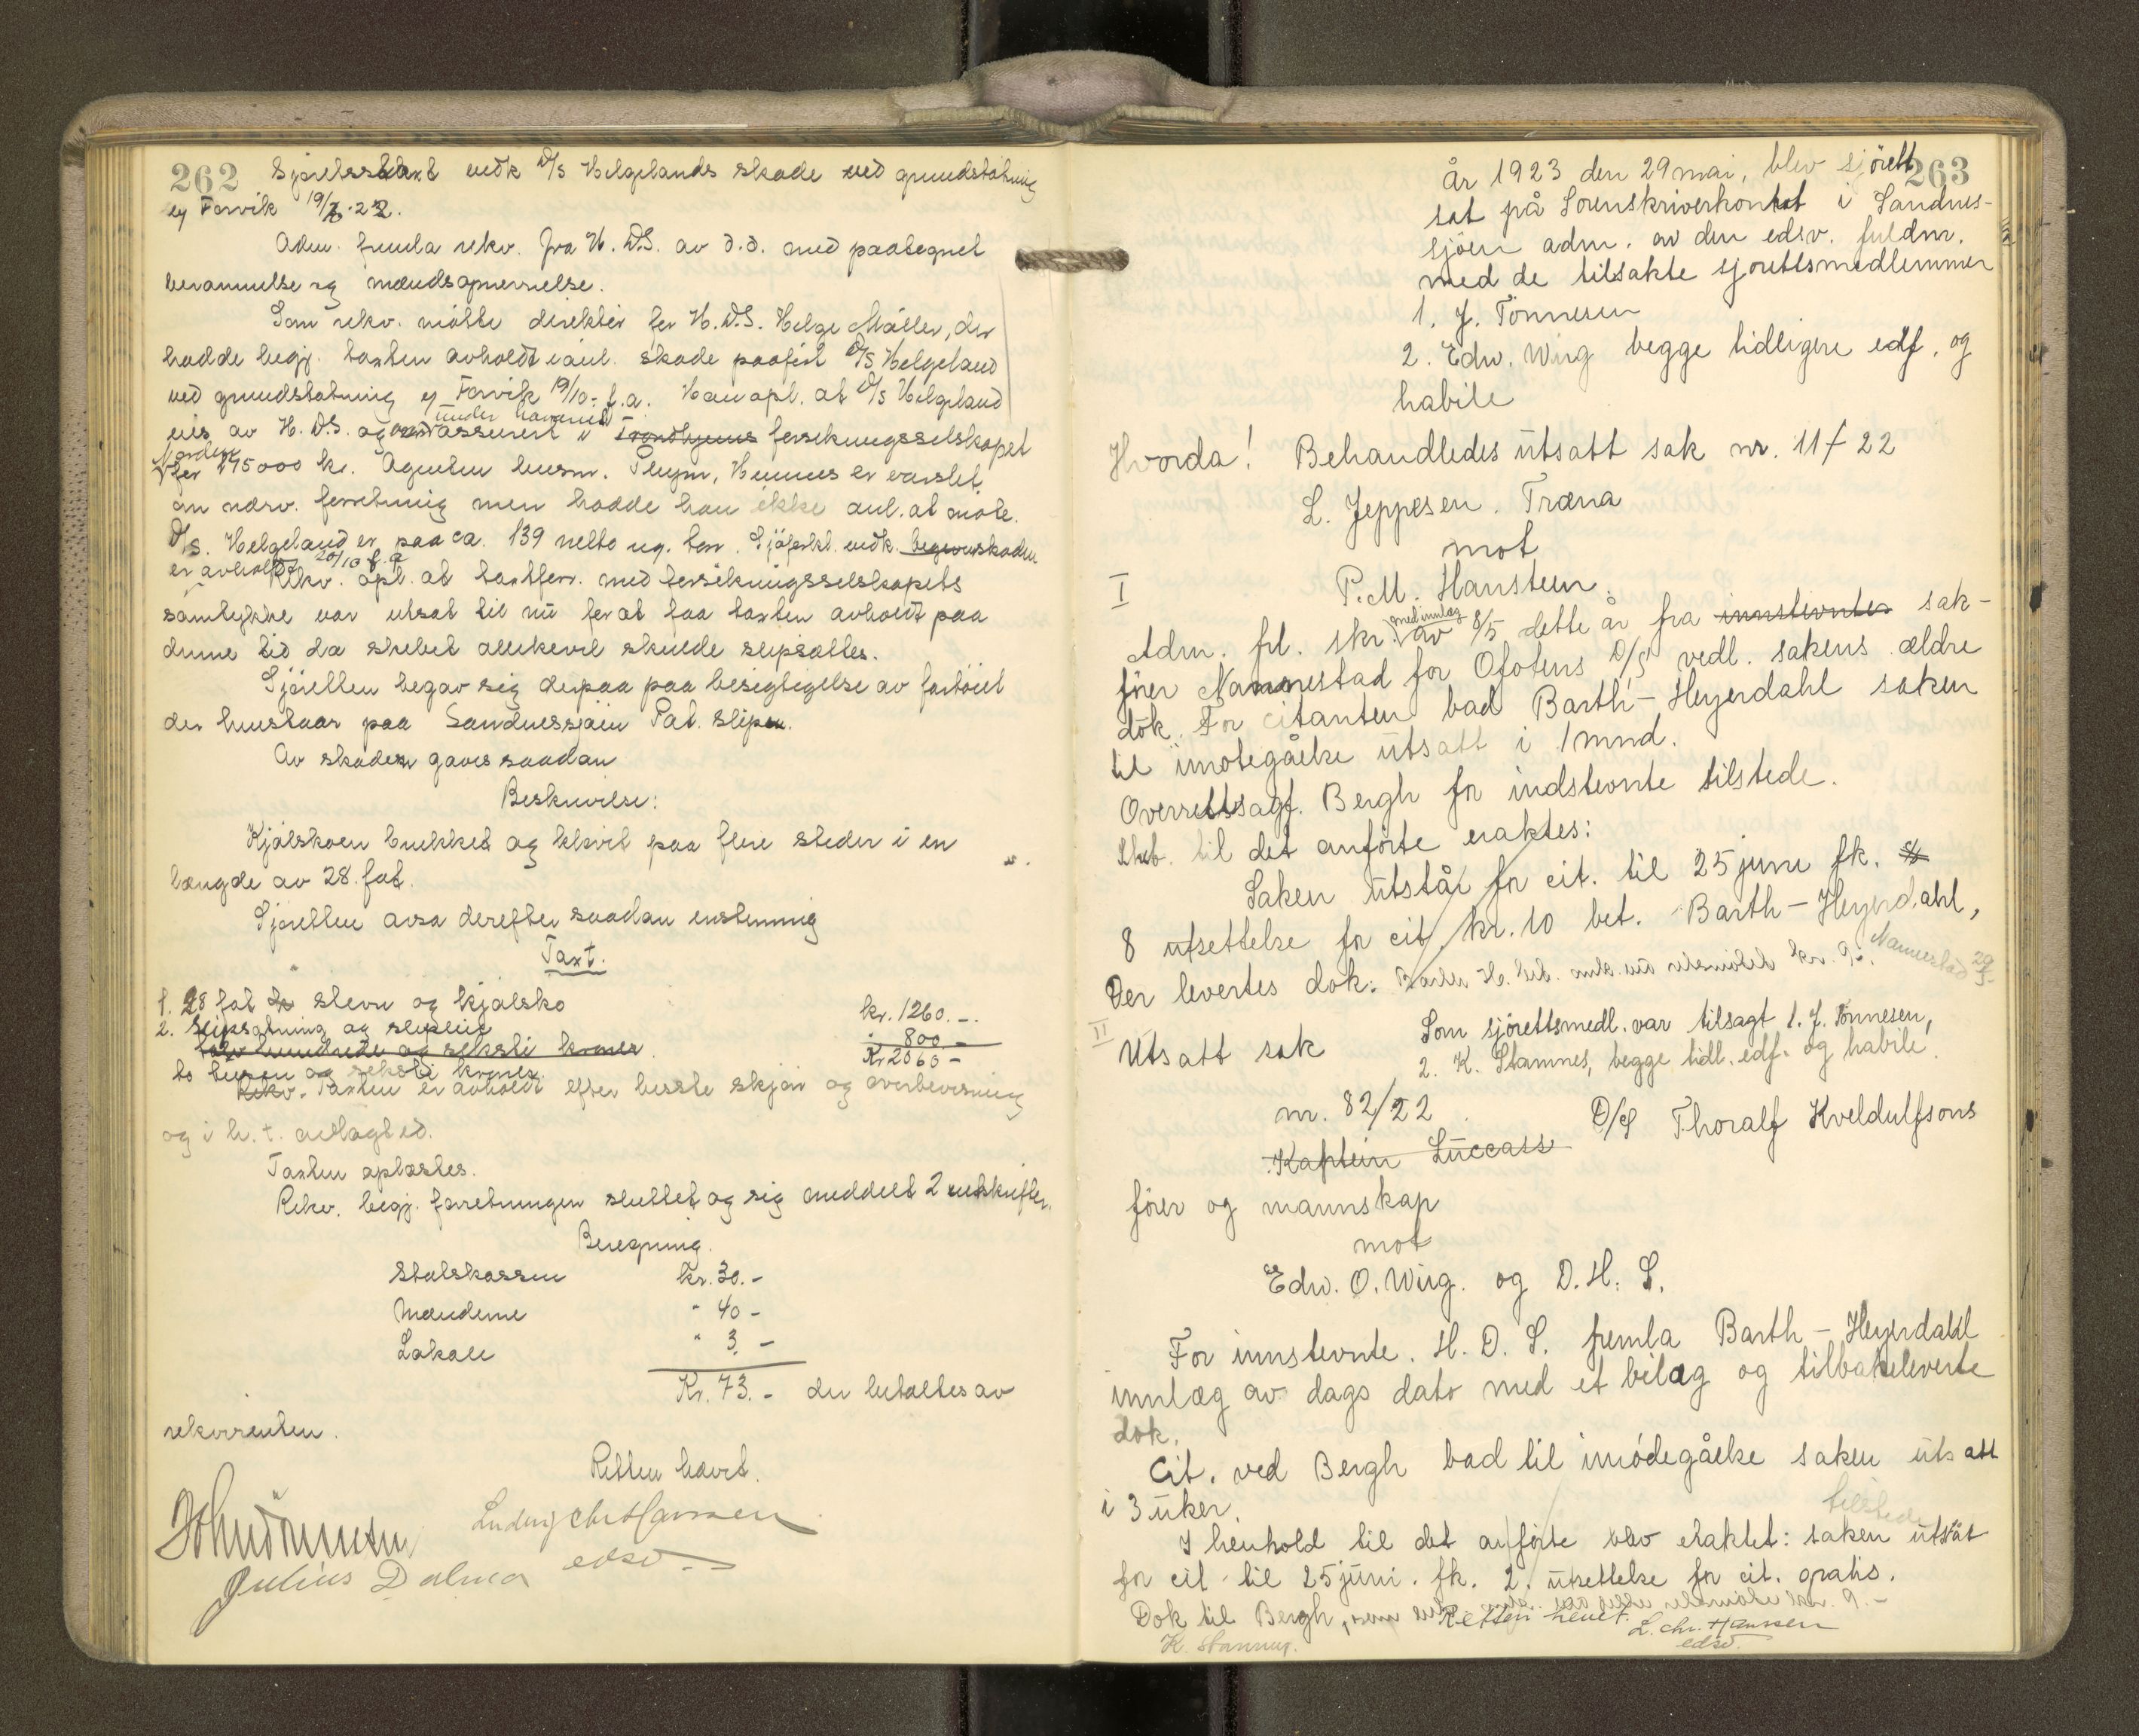 262
Sjøretsstaxt vedk D/S Helgelands skade ved grundstøtning
ved Forvik 19/7-22.
Adm. fremla rekv. fra H.D.S. av d.d. med paategnet
berammelse og mændsopnevnelse.
Som rekv. møtte direktør for H.D.S. Helge Møller, der
hadde begj. taxten avholdt i anl. skade paaført D/S Helgeland
ved grundstøtning ved Forvik 19/10 f.a. Han opl. at D/S Helgeland
eies av H.D.S. og assurert under havari i Trondhjems forsikringsselskapet
Norden
for 175000 kr. Agenten, Hemnes er varslet
om nærv. forretning men hadde han ikke anl. at møte.
D/S. Helgeland er paa ca. 139 netto reg. ton. Sjøforkl. vedk. skaden
er avholdt 20/10 f.a
Rekv. opl. at taxtforr. med forsikringsselskapets
samtykke var utsat til nu for at faa taxten avholdt paa
denne tid da skibet allikevel skulde slipsættes.
Sjøretten begav sig derpaa paa besigtigelse av fartøiet
der henstaar paa Sandnessjøen Pat. slip.
Av skaden gaves saadan
Beskrivelse:
Kjølskoen brukket og kløvet paa flere steder i en
længde av 28. fot.
Sjøretten avsa derefter saadan enstemmig
Taxt.
1. 28 fot stevn og kjølsko kr. 1260.-
2. Slipsætning og slipleie - 800 -
tolv hundrede og seksti kroner Kr 2060 -
to tusen og seksti kroner.
Rekv. Taxten er avholdt efter beste skjøn og overbevisning
og i h.t. avlagt ed.
Taxten oplæstes.
Rekv. begj. forretningen sluttet og sig meddelt 2 utskrifter.
Beregning.
Statskassen kr. 30.-
Mændene " 40 -
Lokale " 3. -
Kr. 73.- der betaltes av
rekvirenten.
Retten hævet.
Ludvig Chr Hansen
edsv.
Joh Tönnesen
Julius Dalmo
263
År 1923 den 29 mai, blev sjörett
sat på Sorenskriverkontoret i Sandnes-
sjöen adm. av den edsv. fuldm.
med de tilsakte sjörettsmedlemmer
1. J. Tönnesen
2. Edw. Wiig begge tidligere edf. og
habile
Hvorda! Behandledes utsatt sak nr. 11/22
L. Jeppesen. Træna
mot
I P.M. Hansteen.
Adm. frl. skr. med innlæg av 8/5 dette år fra innstevntes sak-
förer Nannestad for Ofotens D/S vedl. sakens ældre
dok. For citanten bad Barth-Heyerdahl saken
til imotegåelse utsatt i 1 mnd.
Overrettssagf. Bergh for indstevnte tilstede.
I hht. til det anförte eraktes:
Saken utstår for cit. til 25 juni fk.
8 utsettelse for cit. kr. 10 bet. Barth-Heyerdahl,
Der levertes dok. Barth H. kr. 9.- Nannestad 29/5
II Utsatt sak Som sjörettsmedl. var tilsagt 1. J. Tönnesen,
2. K. Stamnes, begge tidl. edf. og habile.
nr. 82/22
Kaptein Luccass D/S Thoralf Kveldulfsons
förer og mannskap
mot
Edw. O. Wiig. og D.H.S.
For innstevnte. H.D.S. fremla Barth-Heyerdahl
innlæg av dags dato med et bilag og tilbakeleverte
dok.
Cit. ved Bergh bad til imødegåelse saken utsatt
i 3 uker.
tilstede
I henhold til det anförte blev eraktet: saken utstår
for cit. til 25 juni. fk. 2. utsettelse for cit. gratis.
Dok til Bergh, som kr. 9.-
Retten hevet. L. Chr. Hansen
edsv.
K. Stamnes.